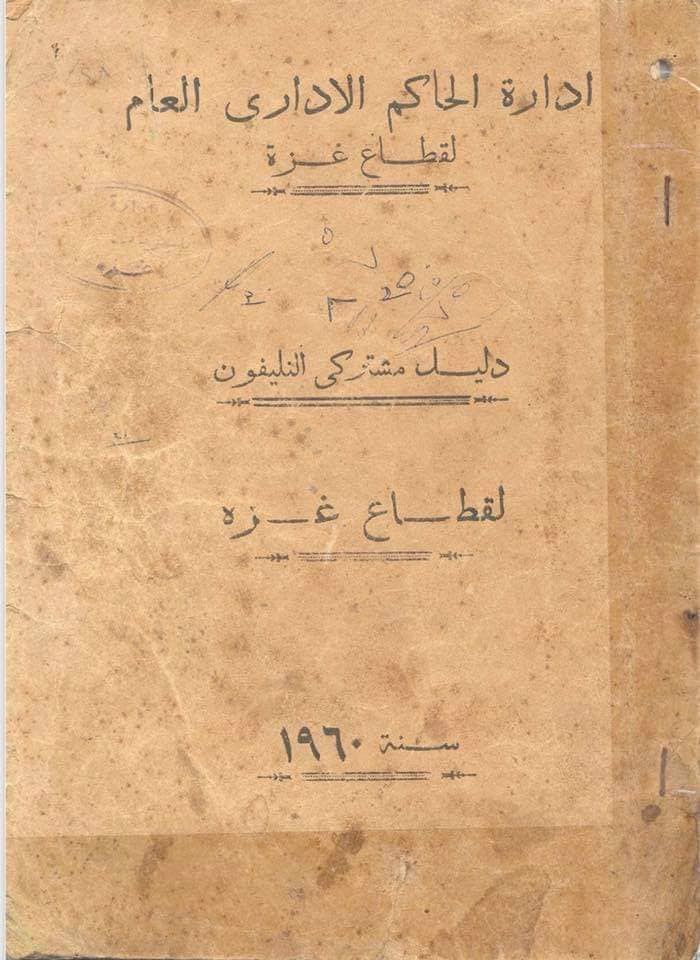 ادارة الحاكم الادارى العام
لقطاع غزة
دليل مشتركى التليفون
لقطاع غزه
سنة ١٩٦٠